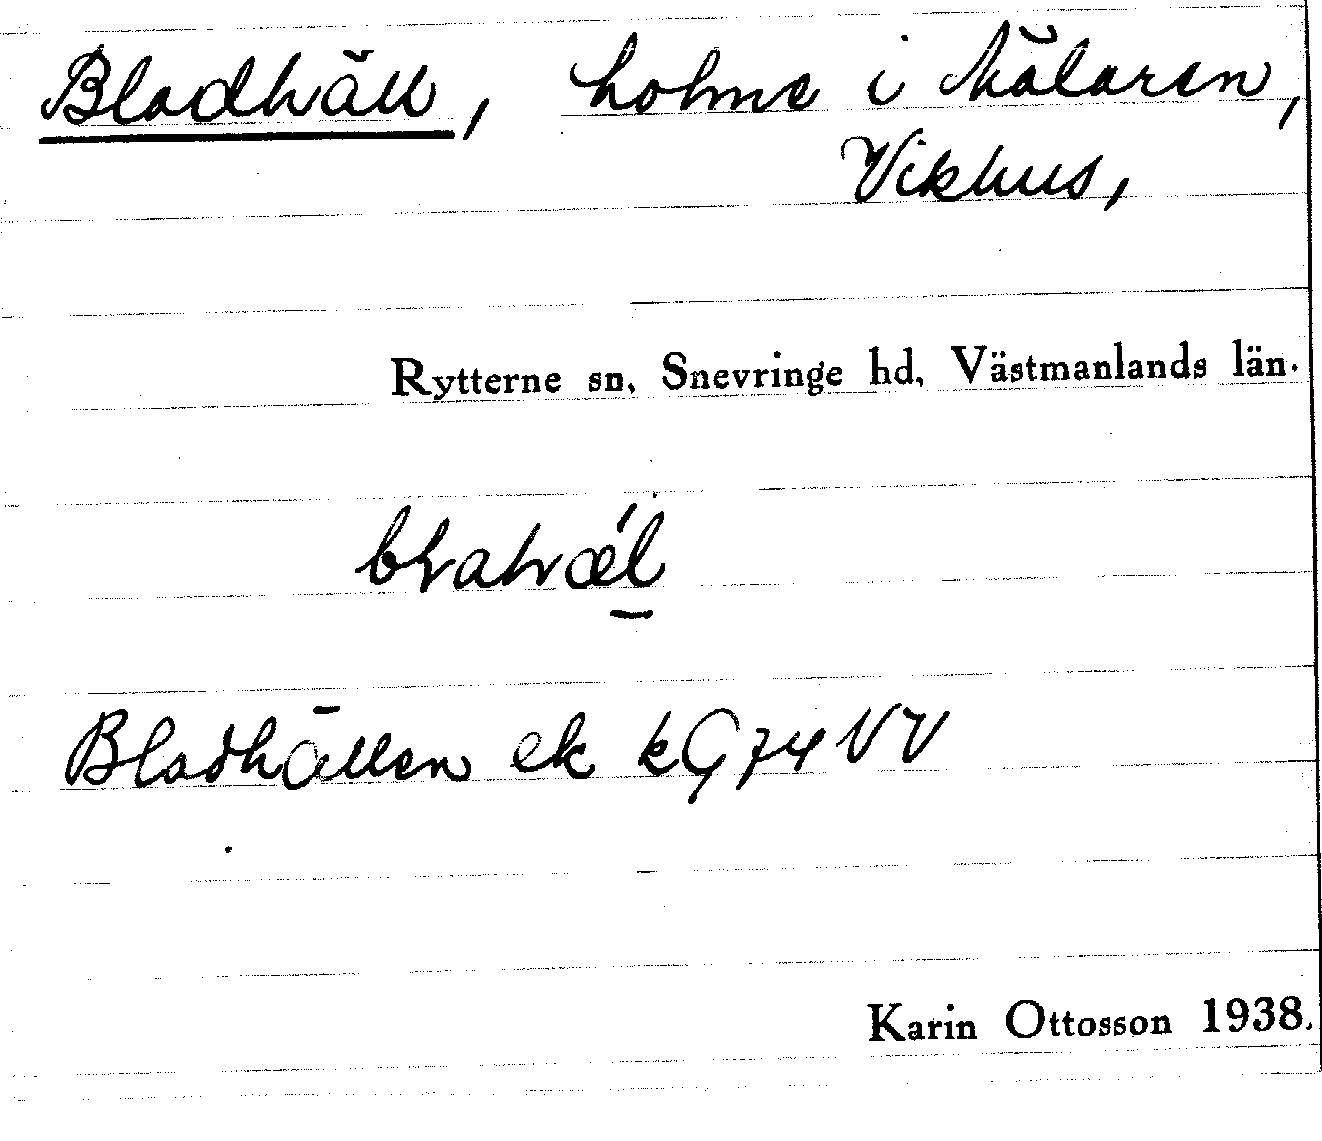 Bladhäll, holme i Mälaren,
Vikhus,
Rytterne sn, Snevringe hd, Västmanlands län.
Bladhällen ek kG74VV
Karin Ottosson 1938.